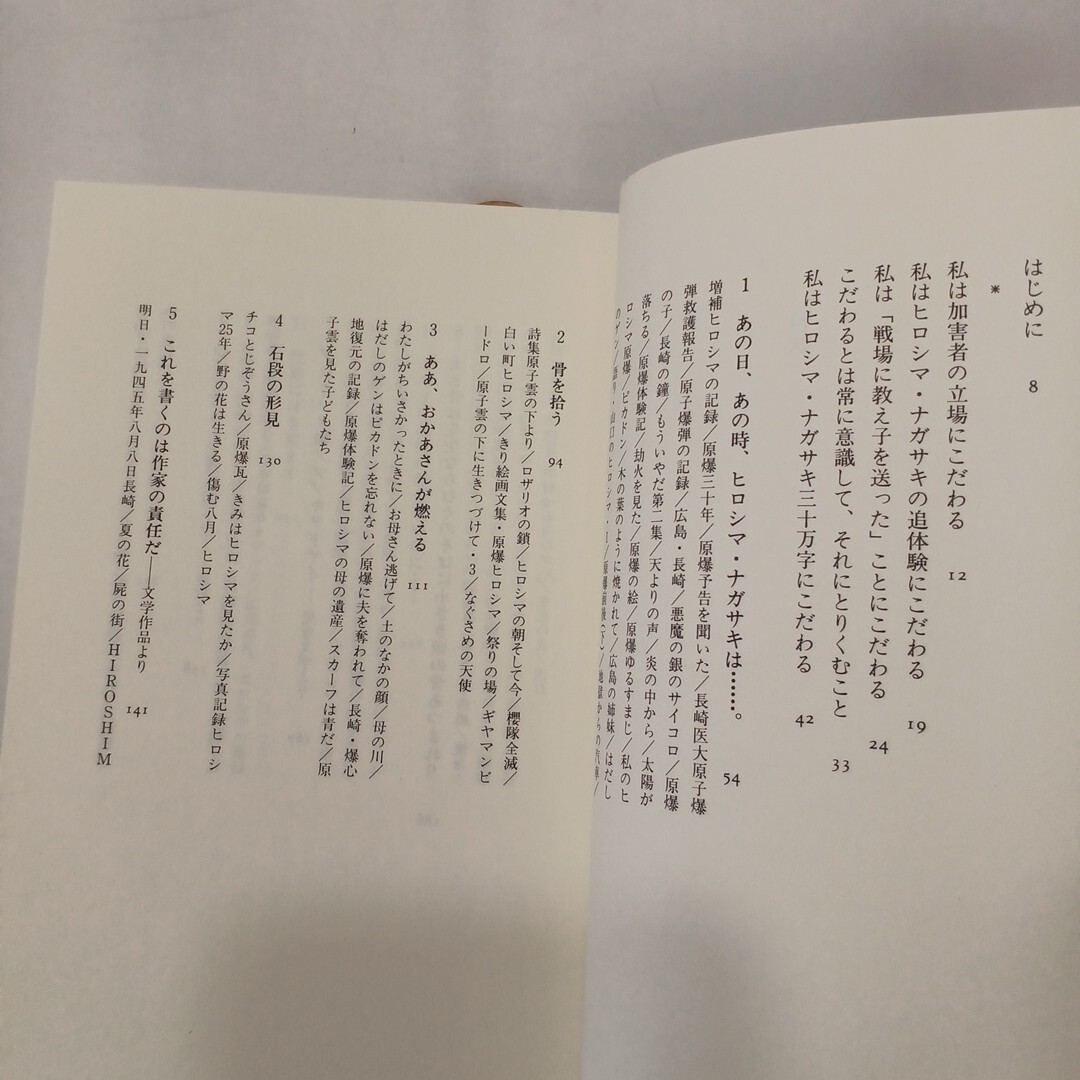 はじめに 8
*
私は加害者の立場にこだわる 12
私はヒロシマ・ナガサキの追体験にこだわる 19
私は「戦場に教え子を送った」ことにこだわる 24
こだわるとは常に意識して、それにとりくむこと 33
私はヒロシマ・ナガサキ三十万字にこだわる 42
1 あの日、あの時、ヒロシマ・ナガサキは……。 54
増補ヒロシマの記録/原爆三十年/原爆予告を聞いた/長崎医大原子爆
弾救護報告/原子爆弾の記録/広島・長崎/悪魔の銀のサイコロ/原爆
の子/長崎の鐘/もういやだ第二集/天よりの声/炎の中から/太陽が
落ちる/原爆体験記/劫火を見た/原爆の絵/原爆ゆるすまじ/私のヒ
ロシマ原爆/ピカドン/木の葉のように焼かれて/広島の姉妹/はだし
のゲン/語り・山口のヒロシマ・
2 骨を拾う 94
詩集原子雲の下より/ロザリオの鎖/ヒロシマの朝そして今/櫻隊全滅/
白い町ヒロシマ/きり絵画文集・原爆ヒロシマ/祭りの場/ギヤマンビ
ードロ/原子雲の下に生きつづけて・3/なぐさめの天使
3 ああ、おかあさんが燃える 111
わたしがちいさかったときに/お母さん逃げて/土のなかの顔/母の川/
はだしのゲンはピカドンを忘れない/原爆に夫を奪われて/長崎・爆心
地復元の記録/原爆体験記/ヒロシマの母の遺産/スカーフは青だ/原
子雲を見た子どもたち
4 石段の形見 130
チコとじぞうさん/原爆瓦/きみはヒロシマを見たか/写真記録ヒロシ
マ25年/野の花は生きる/傷む八月/ヒロシマ
5 これを書くのは作家の責任だ──文学作品より 141
明日・一九四五年八月八日長崎/夏の花/屍の街/HIROSHIM